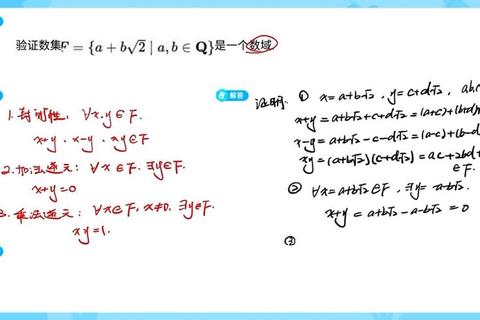 验证数集F = {a + b√2 | a, b ∈ Q}是一个数域
解答
1. 封闭性: ∀x, y ∈ F.
x+y . x-y . xy ∈ F
2. 加法逆元: ∀x ∈ F. ∃y ∈ F.
x+y=0
3. 乘法逆元: ∀x ∈ F, x≠0. ∃y ∈ F.
xy=1.
证明: ① x = a+b√2 , y = c+d√2 ,
x+y = a+b√2 + c+d√2 = (a+c) + (b+d)
x-y = a+b√2 - c-d√2 = (a-c) + (b-d
xy = (a+b√2)(c+d√2) = ac + 2bd +
∈ F.
② ∀x = a+b√2 ∈ F , ∃y = -a-b√2.
x+y = a+b√2 -a-b√2 = 0
③